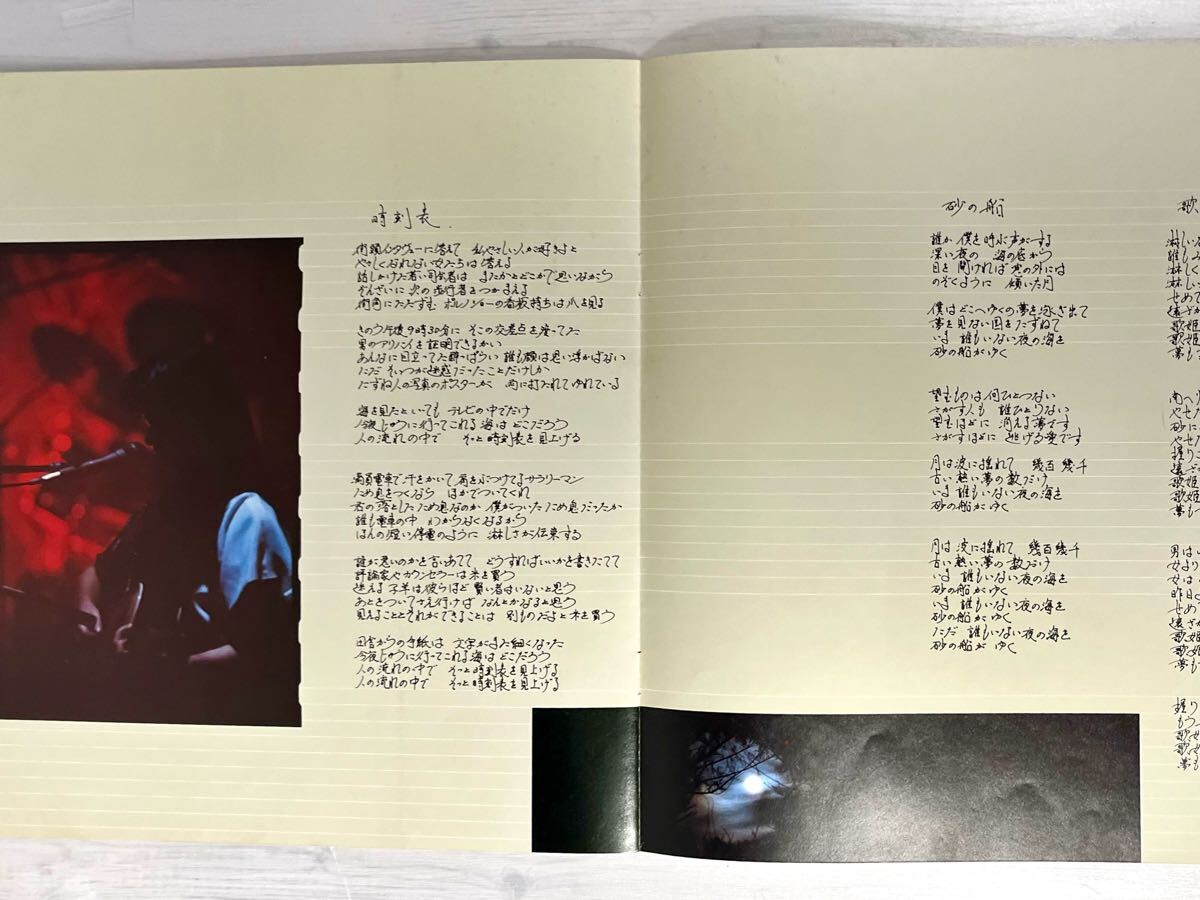 時刻表.
街頭インタヴューに答えて 私やさしい人が好きよと
やさしくなれない女たちは答える
話しかけた若い司会者は またかとどこかで思いながら
ぞんざいに次の歩行者をつかまえる
街角にたたずむ ポルノショーの看板持ちは爪を見る
きのう午後9時30分に そこの交差点を渡ってた
男のアリバイを証明できるかい
あんなに目立ってた酔っぱらい 誰も顔は思い浮かばない
ただ そいつが迷惑だったことだけしか
たずね人の写真のポスターが 雨に打たれてゆれている
海を見たといっても テレビの中でだけ
今夜じゅうに行ってこれる海はどこだろう
人の流れの中で そっと時刻表を見上げる
満員電車で汗をかいて 肩をぶつけてるサラリーマン
ため息をつくなら ほかでついてくれ
君の落としたため息なのか 僕がついたため息だったか
誰も電車の中 わからなくなるから
ほんの短い停電のように 淋しさが伝染する
誰が悪いのかを言いあてて どうすればいいかを書きたてて
評論家やカウンセラーは米を買う
迷える子羊は彼らほど 賢い者はいないと思う
あとをついてさえ行けば なんとかなると思う
見えることとそれができることは 別ものだよと米を買う
田舎からの手紙は 文字がまた細くなった
今夜じゅうに行ってこれる海はどこだろう
人の流れの中で そっと時刻表を見上げる
人の流れの中で そっと時刻表を見上げる
砂の船
誰か 僕を呼ぶ声がする
深い夜の 海の底から
目を 開ければ 窓の外には
のぞくように 傾いた月
僕はどこへゆくの夢を泳ぎ出て
夢を見ない国をたずねて
いま 誰もいない夜の海を
砂の船がゆく
望むものは 何ひとつない
さがす人も 誰ひとりない
望むほどに 消える夢です
さがすほどに 逃げる愛です
月は波に揺れて 幾百 幾千
古い熱い夢の数だけ
いま 誰もいない夜の海を
砂の船がゆく
月は 波に揺れて 幾百幾千
古い熱い夢の数だけ
いま 誰もいない夜の海を
砂の船がゆく
いま 誰もいない夜の海を
砂の船がゆく
ただ 誰もいない夜の海を
砂の船が ゆく